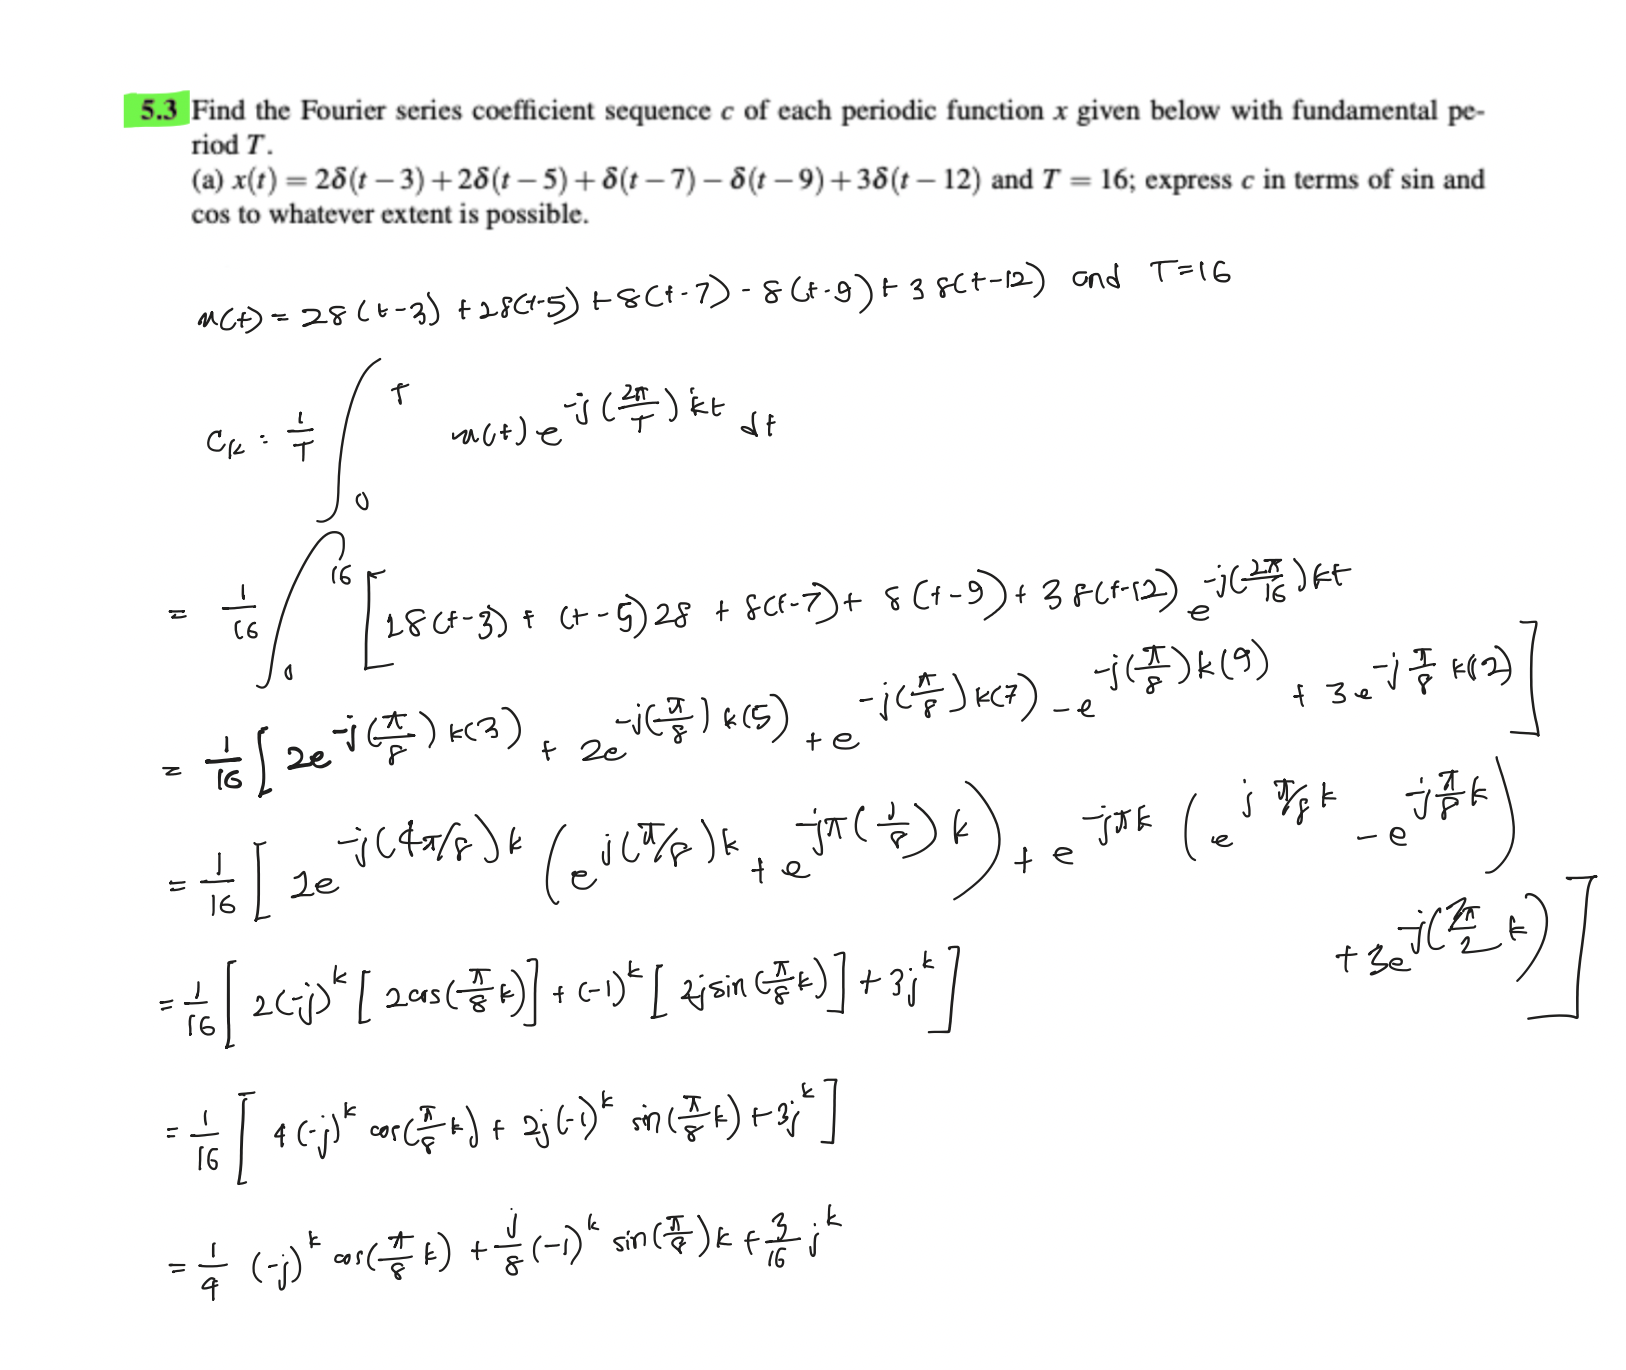 5.3 Find the Fourier series coefficient sequence c of each periodic function x given below with fundamental pe-
riod T.
(a) x(t) = 2δ(t − 3) + 2δ(t − 5) + δ(t − 7) − δ(t − 9) + 3δ(t − 12) and T = 16; express c in terms of sin and
cos to whatever extent is possible.
x(t) = 2δ(t-3) + 2δ(t-5) + δ(t-7) - δ(t-9) + 3δ(t-12) and T=16
C_k = 1/T ∫_0^T x(t) e^{-j(2π/T)kt} dt
= 1/16 ∫_0^16 [2δ(t-3) + (t-5)2δ + δ(t-7) + δ(t-9) + 3δ(t-12) e^{-j(2π/16)kt}
= 1/16 [2e^{-j(π/8)k(3)} + 2e^{-j(π/8)k(5)} + e^{-j(π/8)k(7)} - e^{-j(π/8)k(9)} + 3e^{-j π/8 k(12)}]
= 1/16 [2e^{-j(4π/8)k} (e^{j(π/8)k} + e^{-jπ(1/8)k}) + e^{-jπk} (e^{j π/8 k} - e^{-j π/8 k})
+ 3e^{-j(3π/2 k)}]
= 1/16 [2(-j)^k [2cos(π/8 k)] + (-1)^k [2j sin(π/8 k)] + 3j^k]
= 1/16 [4(-j)^k cos(π/8 k) + 2j(-1)^k sin(π/8 k) + 3j^k]
= 1/4 (-j)^k cos(π/8 k) + j/8 (-1)^k sin(π/8)k + 3/16 j^k